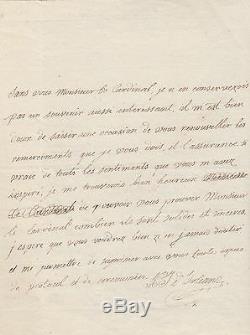 Sans vous Monsieur le Cardinal, je n en conserverois
pas un souvenir aussi interessant, il m est bien
doux de saisir une occasion de vous renouveller les
remerciments que je vous dois, et l'assurance
vraie de touts les sentiments que vous m avez
inspiré, je me trouverois bien heureux
de pouvoir vous prouver Monsieur
le Cardinal combien ils sont solides et sinceres,
j espere que vous voudrez bien n en jamais douter
et me permettre de terminer avec vous toute espece
de protocol et de ceremonies.
d'Orleans